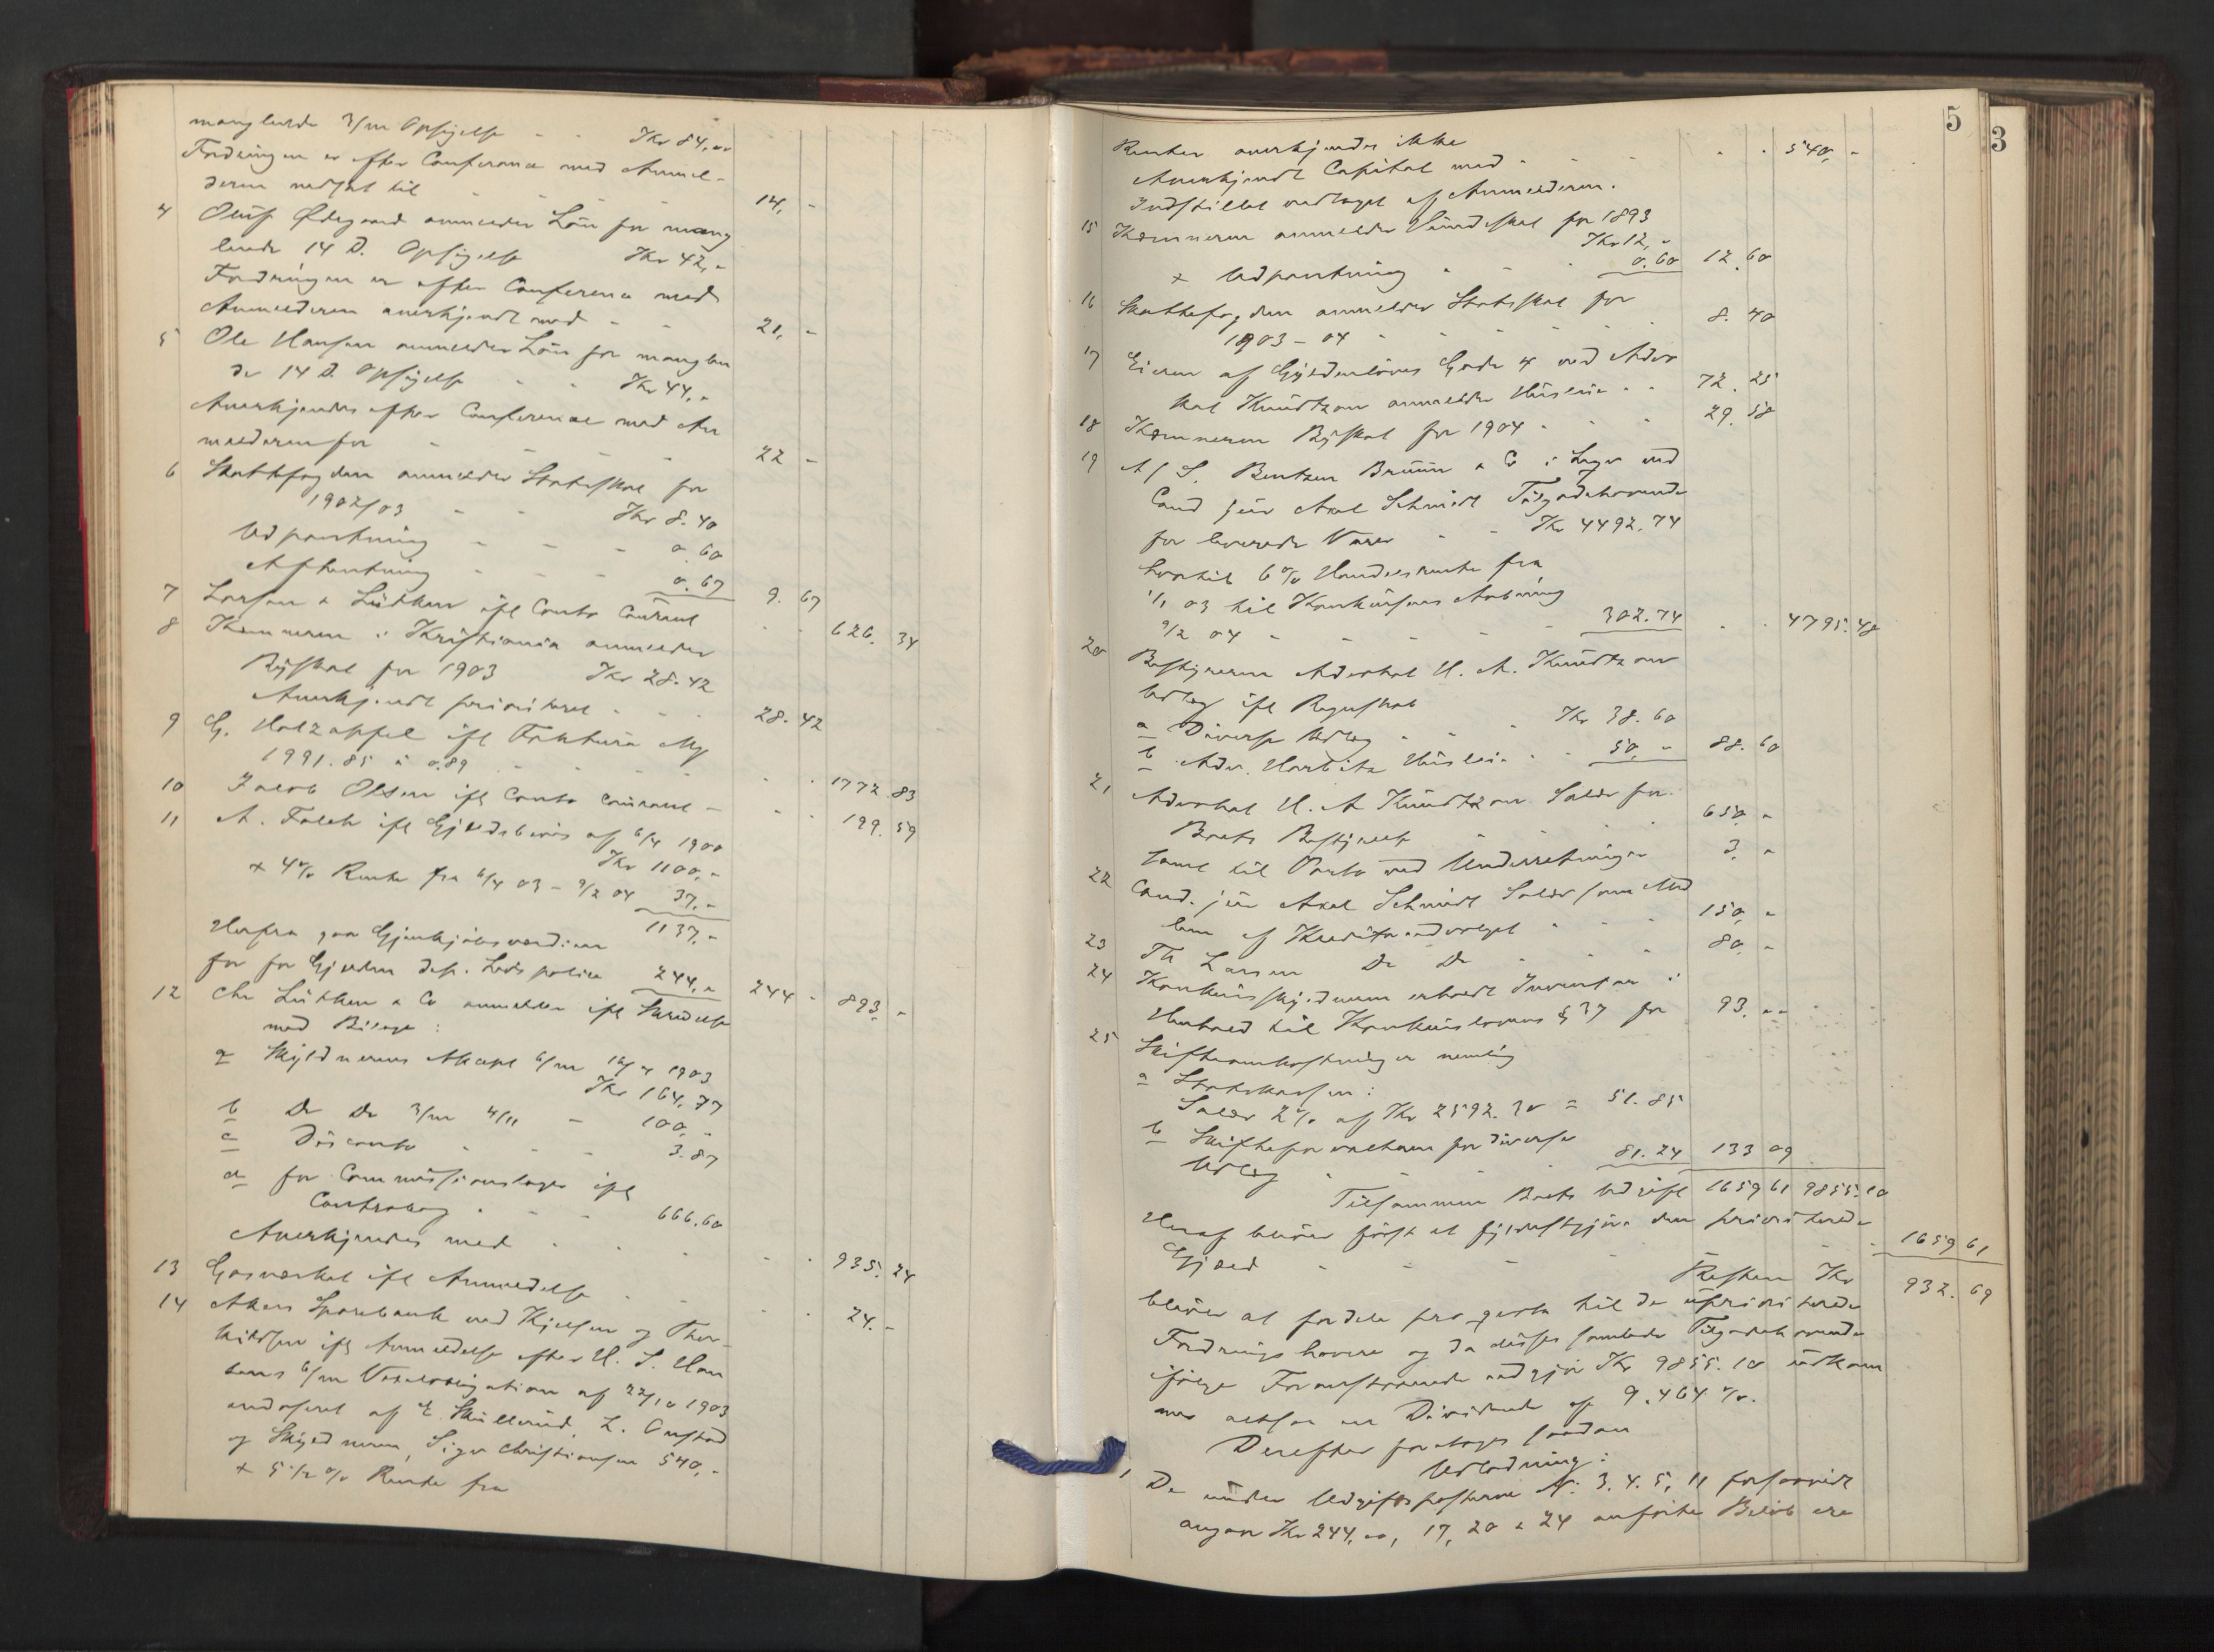 manglende 3/m Opsigelse - - Kr 84,00
Fordringen er efter Conference med Anmel-
deren nedsat til - - - 14, -
4 Oluf Ødegaard anmelder Lön for mang
lende 14 D. Opsigelse Kr 42,-
Fordringen er efter Conference med
Anmelderen anerkjendt med - - 21, -
5 Ole Hansen anmelder Lön for manglen
de 14 D. Opsigelse - - Kr 44,-
Anerkjendes efter Conference med An
melderen for - - - 22 -
6 Skattefogden anmelder Statsskat for
1902/03 - - Kr 8.40
Udpantning - - - 0.60
Afhentning - - - 0.67 9. 67
7 Larsen & Lütken ifl Conto Courant - - 626. 34
8 Kemneren i Kristiania anmelder
Byskat for 1903 Kr 28.42
Anerkjendt prioriteret - - - 28. 42
9 G. Holzappel ifl Faktura Mg
1991.85 à 0.89 - - - - - 1772. 83
10 Jacob Olsen ifl Conto Courant - - - 199. 59
11 A. Falch ifl Gjeldsbevis af 6/4 1900
Kr 1100,-
+ 4% Rente fra 6/4 03 - 9/2 04 37,-
1137,-
Herfra gaar Gjenkjöbsværdien
for for Gjelden dep. Livspolice 244,- 244 - 893, -
12 Chr Lütken & Co anmelder ifl Skrivelse
med Bilage:
a Skyldnerens Accept 6/m 16/4 1903
Kr 164.77
b Do Do 3/m 4/11 - 100,-
c Disconto - - - 3.87
d for Commissionslager ifl
Contrabog - - - 666.60
Anerkjendes med - - - - - 935. 24
13 Gasværket ifl Anmeldelse - - - - 24. -
14 Akers Sparebank ved Kjelsen og Thor-
kildsen ifl Anmeldelse efter H. S. Han
sens 6/m Vexelobligation af 22/10 1903
endosseret af E. Skullerud, L. Onstad
og Skyldneren, Sigv Christiansen 540,-
+ 5 1/2 % Rente fra
5
3
Renter anerkjendes ikke
Anerkjendt Capital med - - - - - 540, -
Indstillet vedtaget af Anmelderen.
15 Kemneren anmelder Hundeskat for 1893
Kr 12,-
+ Udpantning - - - 0.60 12. 60
16 Skattefogden anmelder Statsskat for
1903 - 04 - - - - - 8. 40
17 Eieren af Gyldenlöves Gade 4 ved Advo
kat Knudtzon anmelder Husleie - - 72. 25
18 Kemneren Byskat for 1904 - - - 29. 58
19 A/S. Bentzen Bruun & Co i Lager ved
Cand jur Axel Schmidt Tilgodehavende
for leverede Varer - - Kr 4492.74
hvortil 6% Handelsrente fra
1/1 03 til Konkursens Aabning
9/2 04 - - - - - 302.74 - - 4795. 48
20 Bestyreren Advokat H. A. Knudtzon
Udlæg ifl Regnskab
a Diverse Udlæg - - - Kr 38.60
b Adv. Harbitz Husleie - - 50,- 88. 60
21 Advokat H. A Knudtzon Salær for
Boets Bestyrelse - - - - 650, -
samt til Porto ved Underretninger 3, -
22 Cand. jur Axel Schmidt Salær som Med
lem af Kreditorudvalget - - - 150, -
23 Th Larsen Do Do - - - 80, -
24 Konkursskyldneren erholdt Inventar i
Henhold til Konkurslovens § 37 for 93. --
25 Skifteomkostninger nemlig
a Statskassen:
Salær 2% af Kr 2592.30 = 51.85
b Skifteforvalteren for diverse
Udlæg - - - - 81.24 133 09
Tilsammen Boets Udgift 1659 61 9855. 10
Heraf bliver først at fyldestgjöre den prioriterede
Gjæld - - - - - - 1659 61
Resten Kr 932. 69
bliver at fordele pro qvota til de uprioriterede
Fordringshavere og da disses samlede Tilgodehavende
ifölge Foranstaaende udgjör Kr 9855.10 udkom
mer altsaa en Dividende af 9.464 %.
Derefter foretoges saadan
Udlodning:
1 De under Udgiftsposterne No: 3. 4. 5, 11 forsaavidt
angaar Kr 244,00, 17, 20 & 24 anførte Belöb ere